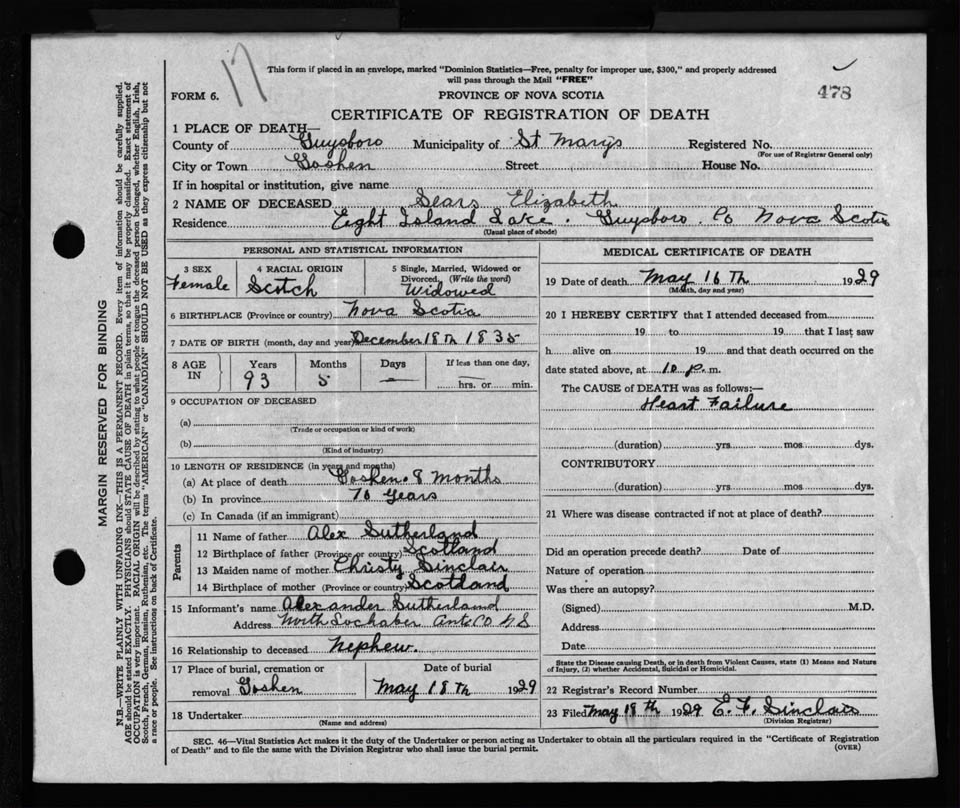 This form if placed in an envelope, marked "Dominion Statistics—Free, penalty for improper use, $300," and properly addressed
will pass through the Mail "FREE"
17
478
FORM 6.
PROVINCE OF NOVA SCOTIA
CERTIFICATE OF REGISTRATION OF DEATH
1 PLACE OF DEATH—
County of Guysboro Municipality of St Marys Registered No.
(For use of Registrar General only)
City or Town Goshen Street House No.
If in hospital or institution, give name
2 NAME OF DECEASED Sears Elizabeth
Residence Eight Island Lake. Guysboro. Co Nova Scotia
(Usual place of abode)
PERSONAL AND STATISTICAL INFORMATION
3 SEX
Female
4 RACIAL ORIGIN
Scotch
5 Single, Married, Widowed or
Divorced. (Write the word)
Widowed
6 BIRTHPLACE (Province or country) Nova Scotia
7 DATE OF BIRTH (month, day and year) December 18th 1835
8 AGE
IN
Years
93
Months
5
Days
—
If less than one day,
hrs. or min.
9 OCCUPATION OF DECEASED
(a)
(Trade or occupation or kind of work)
(b)
(Kind of industry)
10 LENGTH OF RESIDENCE (in years and months)
(a) At place of death Goshen. 8 months
(b) In province 70 years
(c) In Canada (if an immigrant)
Parents
11 Name of father Alex Sutherland
12 Birthplace of father (Province or country) Scotland
13 Maiden name of mother Christy Sinclair
14 Birthplace of mother (Province or country) Scotland
15 Informant's name Alexander Sutherland
Address North Lochaber Ant. Co N S
16 Relationship to deceased Nephew.
17 Place of burial, cremation or
removal Goshen
Date of burial
May 18th 1929
18 Undertaker
(Name and address)
MEDICAL CERTIFICATE OF DEATH
19 Date of death May 16th 1929
(Month, day and year)
20 I HEREBY CERTIFY that I attended deceased from
19 to 19 that I last saw
h alive on 19 and that death occurred on the
date stated above, at 10 p. m.
The CAUSE of DEATH was as follows:—
Heart Failure
(duration) yrs. mos. dys.
CONTRIBUTORY
(duration) yrs. mos. dys.
21 Where was disease contracted if not at place of death?
Did an operation precede death? Date of
Nature of operation
Was there an autopsy?
(Signed) M.D.
Address
Date
State the Disease causing Death, or in death from Violent Causes, state (1) Means and Nature
of Injury, (2) whether Accidental, Suicidal or Homicidal.
22 Registrar's Record Number
23 Filed May 18th 1929 E. F. Sinclair
(Division Registrar)
SEC. 46—Vital Statistics Act makes it the duty of the Undertaker or person acting as Undertaker to obtain all the particulars required in the "Certificate of Registration
of Death" and to file the same with the Division Registrar who shall issue the burial permit.
(OVER)
MARGIN RESERVED FOR BINDING
N.B.—WRITE PLAINLY WITH UNFADING INK—THIS IS A PERMANENT RECORD. Every item of information should be carefully supplied.
AGE should be stated EXACTLY. PHYSICIANS should STATE CAUSE OF DEATH in plain terms, so that it may be properly classified. Exact statement of
OCCUPATION is very important. RACIAL ORIGIN will be described by stating to what people or tongue the deceased person belonged, whether English, Irish,
Scotch, French, German, Russian, Ruthenian, etc. The terms "AMERICAN" or "CANADIAN" SHOULD NOT BE USED as they express citizenship but not
a race or people. See instructions on back of Certificate.